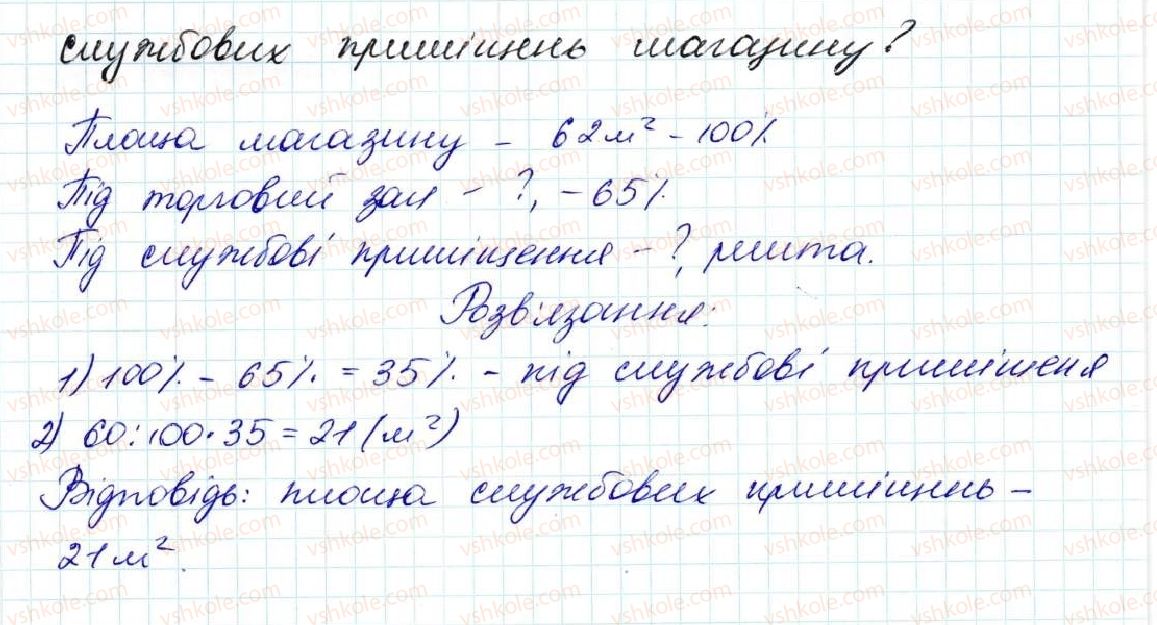 службових приміщень магазину?
Площа магазину – 62 м² – 100%
Під торговий зал – ?, – 65%.
Під службові приміщення – ?, решта.
Розв'язання:
1) 100% – 65% = 35% – під службові приміщеня
2) 60:100·35 = 21 (м²)
Відповідь: площа службових приміщень –
21 м².